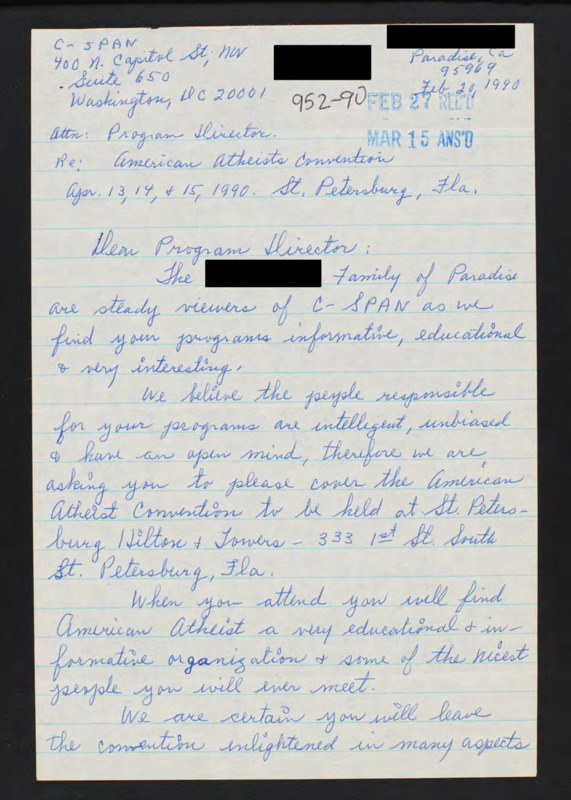 C-SPAN
400 N. Capitol St, NW
Suite 650
Washington, DC 20001
Paradise, Ca
95969
Feb. 20, 1990
952-90
FEB 27 REC'D
MAR 15 ANS'D
Attn: Program Director.
Re: American Atheists Convention
Apr. 13, 14, & 15, 1990. St. Petersburg, Fla.
Dear Program Director:
The Family of Paradise
are steady viewers of C-SPAN as we
find your programs informative, educational
& very interesting.
We believe the people responsible
for your programs are intelligent, unbiased
& have an open mind, therefore we are
asking you to please cover the American
Atheist Convention to be held at St. Peters-
burg Hilton & Towers - 333 1st St. South
St. Petersburg, Fla.
When you attend you will find
American Atheist a very educational & in-
formative organization & some of the nicest
people you will ever meet.
We are certain you will leave
the convention enlightened in many aspects